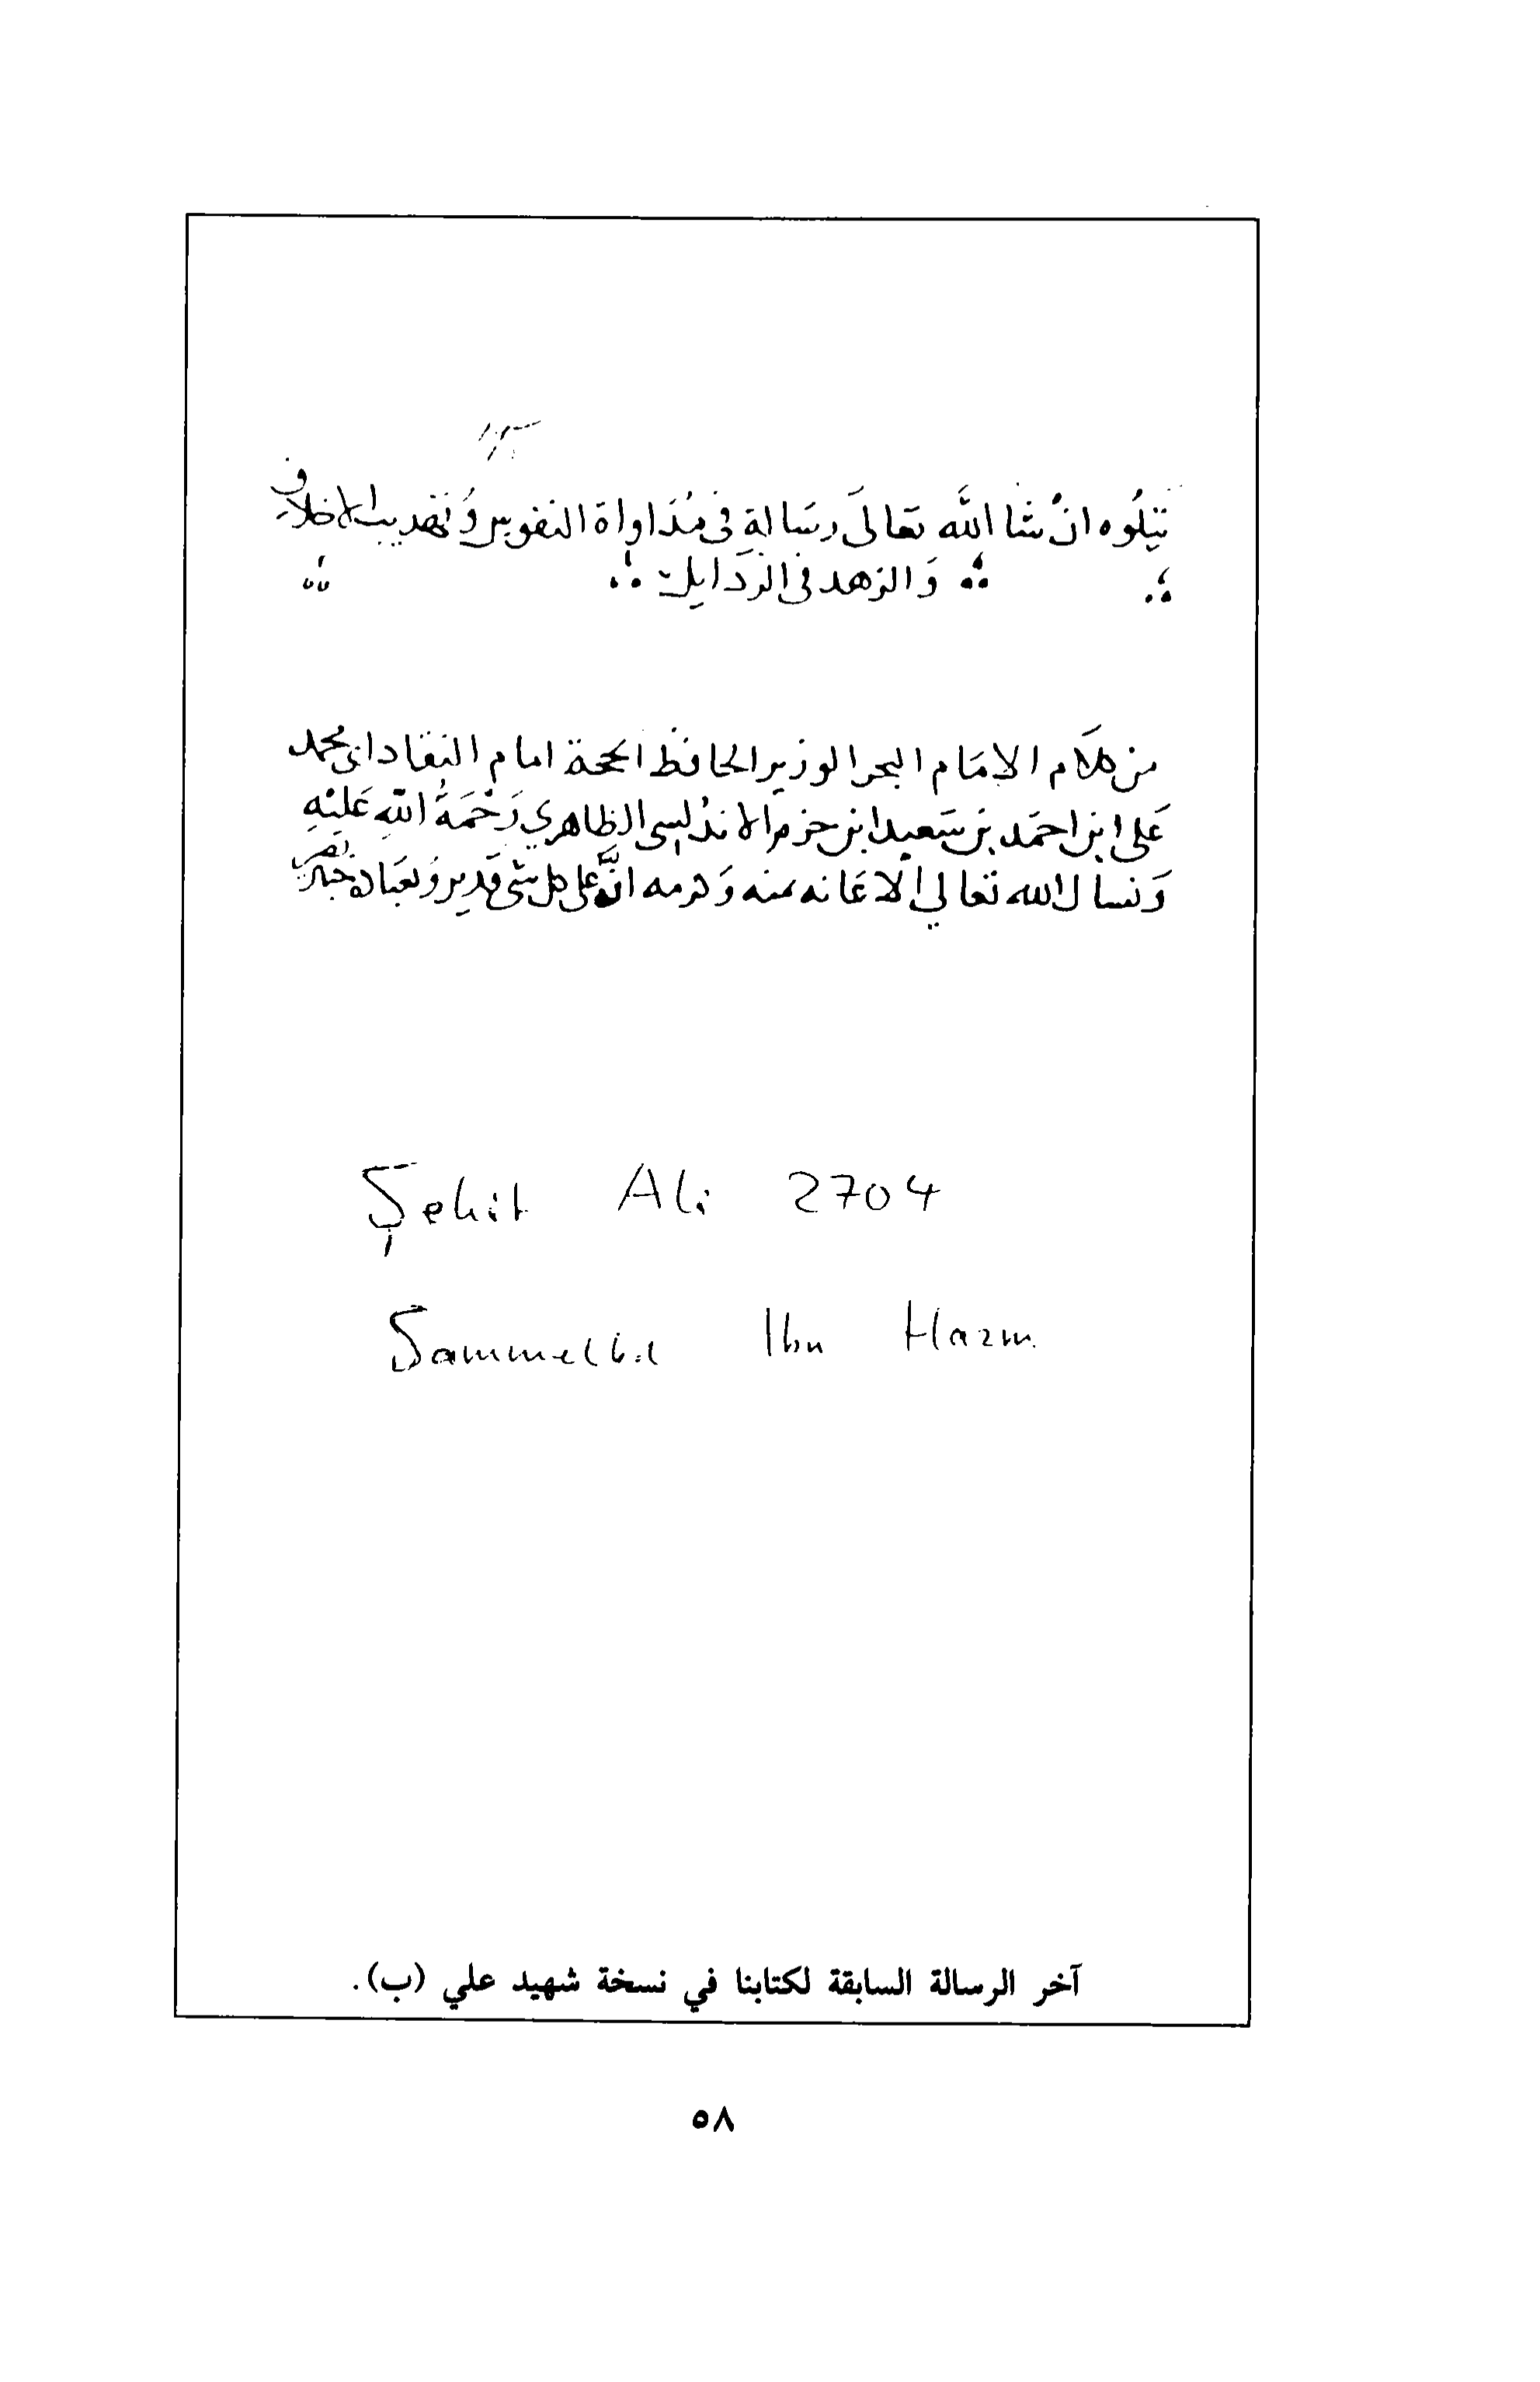 يتلوه انْ شا الله تعالىَ رسَالة في مُدَاواة النفوس وَتهذيب الاخلاق
وَالزهد في الرذايل
من كلام الامَام البحر الوزير الحافظ الحجة امام النقاد ابى محمد
عَلى ابن احمَد بن سَعيد ابن حزم الاندلسى الظاهري رَحْمَةُ اللهِ عَليْهِ
وَنسال الله تعالي الاعَانه بمنه وَكرمه انّهُ على كل شى قدير وَبعبَاده خبير بصير
Şehit Ali 2704
Sammelbd Ibn Hazm.
آخر الرسالة السابقة لكتابنا في نسخة شهيد علي (ب).
٥٨